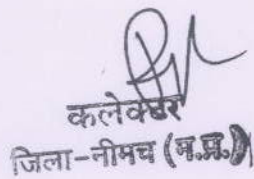 कलेक्टर
जिला-नीमच (म.प्र.)